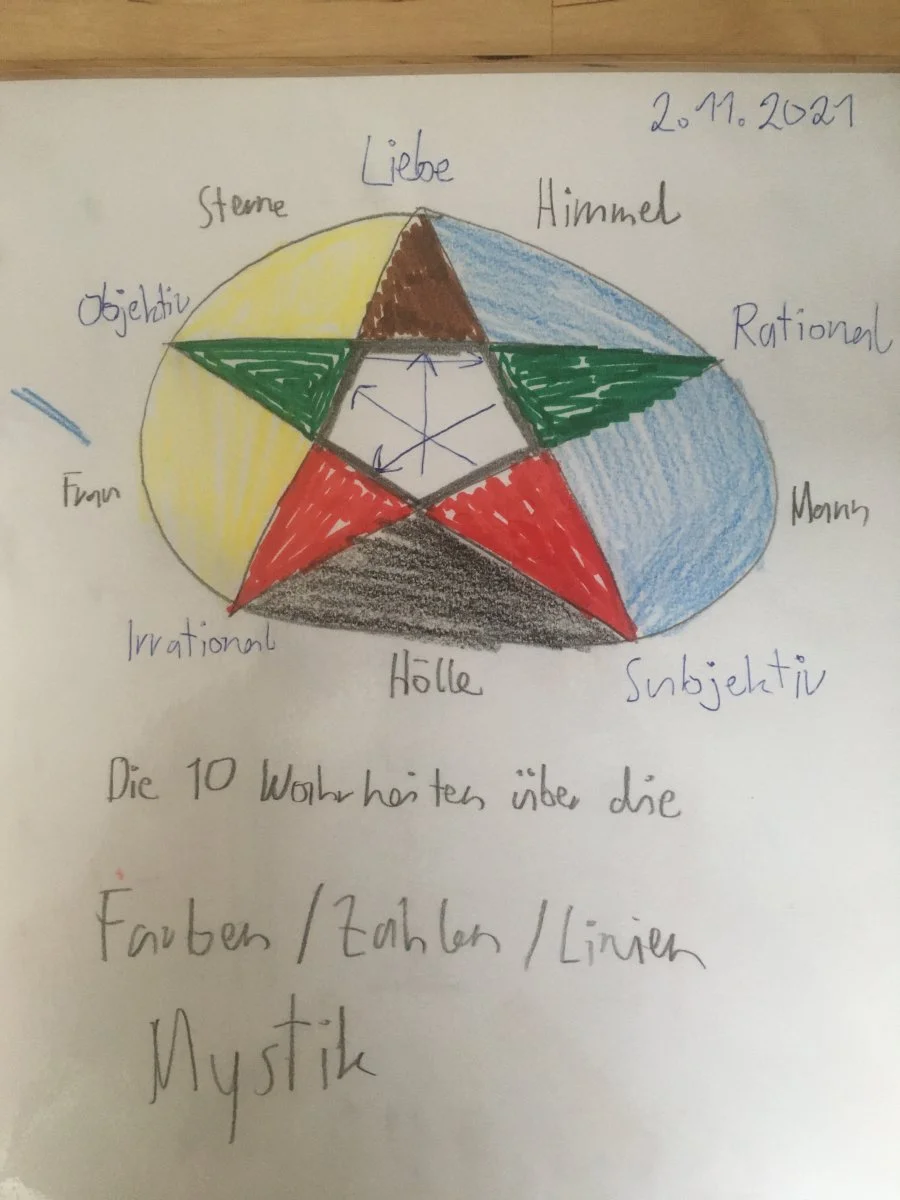 2.11.2021
Liebe
Sterne
Himmel
Objektiv
Rational
Frau
Mann
Irrational
Hölle
Subjektiv
Die 10 Wahrheiten über die
Farben / Zahlen / Linien
Mystik